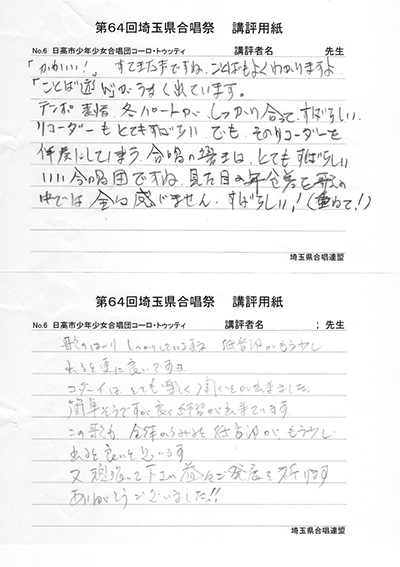 第64回埼玉県合唱祭　講評用紙
No.6 日高市少年少女合唱団コーロ・トゥッティ　講評者名　先生
「かわいい！」すてきな声ですね、ことばもよくわかりますよ
「ことば遊び」がうまく出ています。
テンポ 表情、各パートが、しっかり合って、すばらしい
リコーダーもとてもすばらしい でも、そのリコーダーを
伴奏にして 合唱の皆さんは、とてもすばらしい
いい合唱団ですね、見た目の年令差を歌の
中では全く感じません、すばらしい！（重ねて！）
埼玉県合唱連盟
第64回埼玉県合唱祭　講評用紙
No.6 日高市少年少女合唱団コーロ・トゥッティ　講評者名　先生
しっかりしている 低音がもう少し
出ると更に良いですね
とても楽しく聞くことが出来ました。
簡単そうですが良く練習が出来ています
この歌も 全体から 低音が、もう少し
出ると良いと思います
又 頑張って下さい 益々ご発展を祈ります
ありがとうございました!!
埼玉県合唱連盟